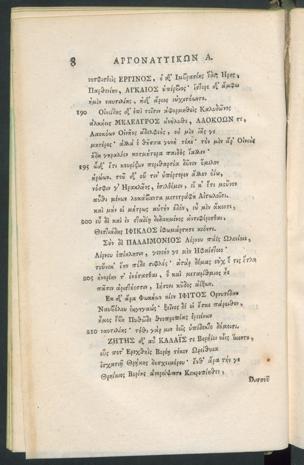 8 ΑΡΓΟΝΑΥΤΙΚΩΝ Α.
νοσφισθεὶς ΕΡΓΙΝΟΣ, ὁ δ᾽ Ἰμβρασίης ἕδος Ἥρης,
Παρθενίην, ΑΓΚΑΙΟΣ ὑπέρβιος· ἴστορε δ᾽ ἄμφω
ἠμὲν ναυτιλίης, ἠδ᾽ ἄρεος εὐχετόωντο.
190 Οἰνεΐδης δ᾽ ἐπὶ τοῖσιν ἀφορμηθεὶς Καλυδῶνος
ἀλκήεις ΜΕΛΕΑΓΡΟΣ ἀνήλυθε, ΛΑΟΚΟΩΝ τε,
Λαοκόων Οἰνῆος ἀδελφεὸς, οὐ μὲν ἰῆς γε
μητέρος· ἀλλά ἑ θῆσσα γυνὴ τέκε· τὸν μὲν ἄρ᾽ Οἰνεὺς
ἤδη γηραλέον κοσμήτορα παιδὸς ἴαλλεν·
195 ὧδ᾽ ἔτι κουρίζων περιθαρσέα δῦνεν ὅμιλον
ἡρώων. τοῦ δ᾽ οὔ τιν᾽ ὑπέρτερον ἄλλον ὀΐω,
νόσφιν γ᾽ Ἡρακλῆος, ἐπελθέμεν, εἴ κ᾽ ἔτι μοῦνον
αὖθι μένων λυκάβαντα μετετράφη Αἰτωλοῖσι.
καὶ μήν οἱ μήτρως αὐτὴν ὁδὸν, εὖ μὲν ἄκοντι,
200 εὖ δὲ καὶ ἐν σταδίῃ δεδαημένος ἀντιφέρεσθαι,
Θεστιάδης ΙΦΙΚΛΟΣ ἐφωμάρτησε κιόντι.
Σὺν δὲ ΠΑΛΑΙΜΟΝΙΟΣ Λέρνου παῖς Ὠλενίοιο,
Λέρνου ἐπίκλησιν, γενεήν γε μὲν Ἡφαίστοιο·
τοὔνεκ᾽ ἔην πόδε σιφλός· ἀτὰρ δέμας οὔ κέ τις ἔτλη
205 ἠνορέην τ᾽ ὀνόσασθαι, ὃ καὶ μεταρίθμιος ἦεν
πᾶσιν ἀριστήεσσιν, Ἰήσονι κῦδος ἀέξων.
Ἐκ δ᾽ ἄρα Φωκήων κίεν ΙΦΙΤΟΣ Ὀρνυτίδαο
Ναυβόλου ἐκγεγαώς· ξεῖνος δέ οἱ ἔσκε πάροιθεν,
ἦμος ἔβη Πυθῶδε θεοπροπίας ἐρεείνων
210 ναυτιλίης· τόθι γάρ μιν ἑοῖς ὑπέδεκτο δόμοισι.
ΖΗΤΗΣ δ᾽ αὖ ΚΑΛΑΪΣ τε Βορήϊοι υἷες ἵκοντο,
οὕς ποτ᾽ Ἐρεχθηῒς Βορέῃ τέκεν Ὠρείθυια
ἐσχατιῇ Θρῄκης δυσχειμέρου· ἔνθ᾽ ἄρα τήν γε
Θρηΐκιος Βορέης ἀνερέψατο Κεκροπίηθεν,